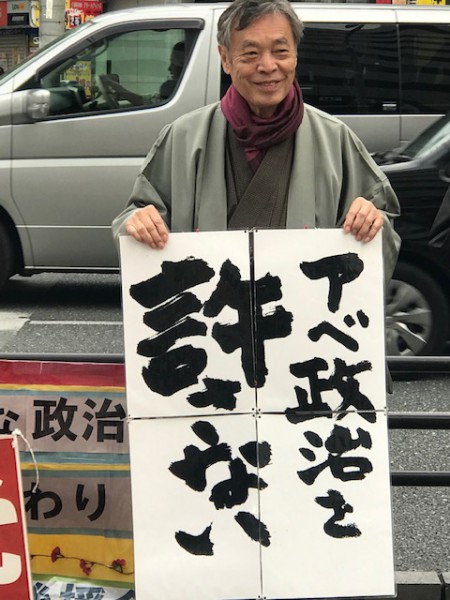 アベ政治を
許さない
な政治
わり